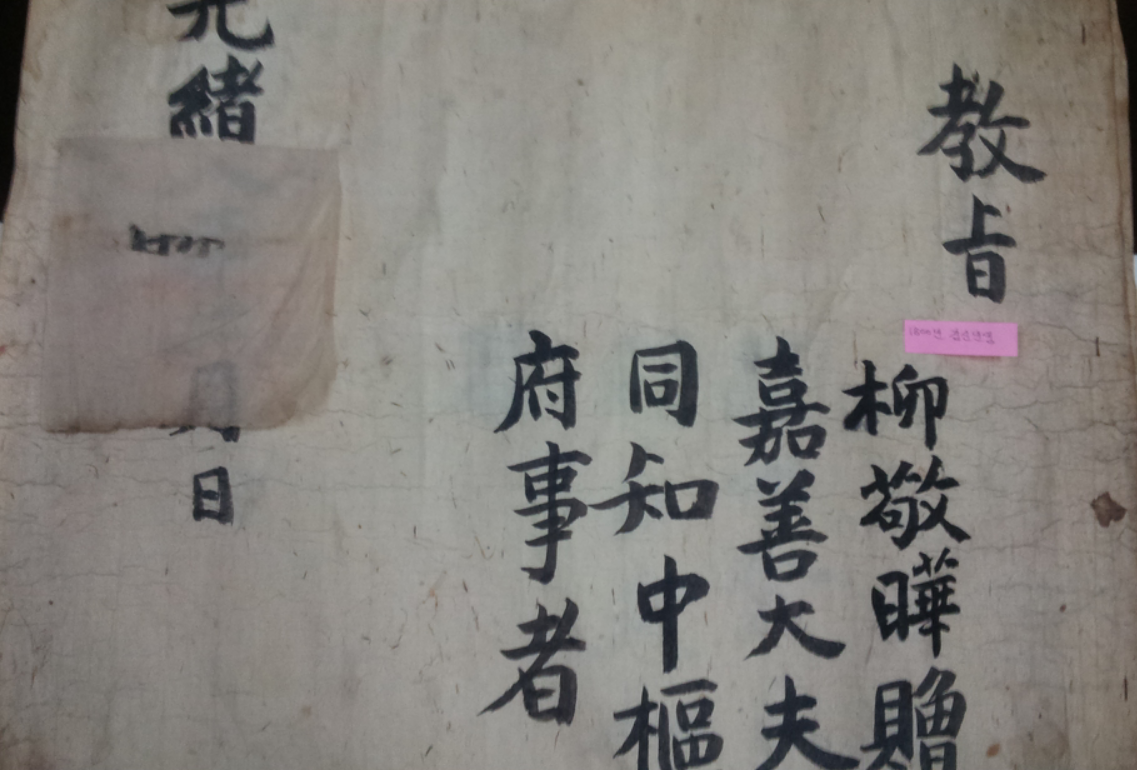 教旨
柳敬曄贈
嘉善大夫
同知中樞
府事者
光緒
月日